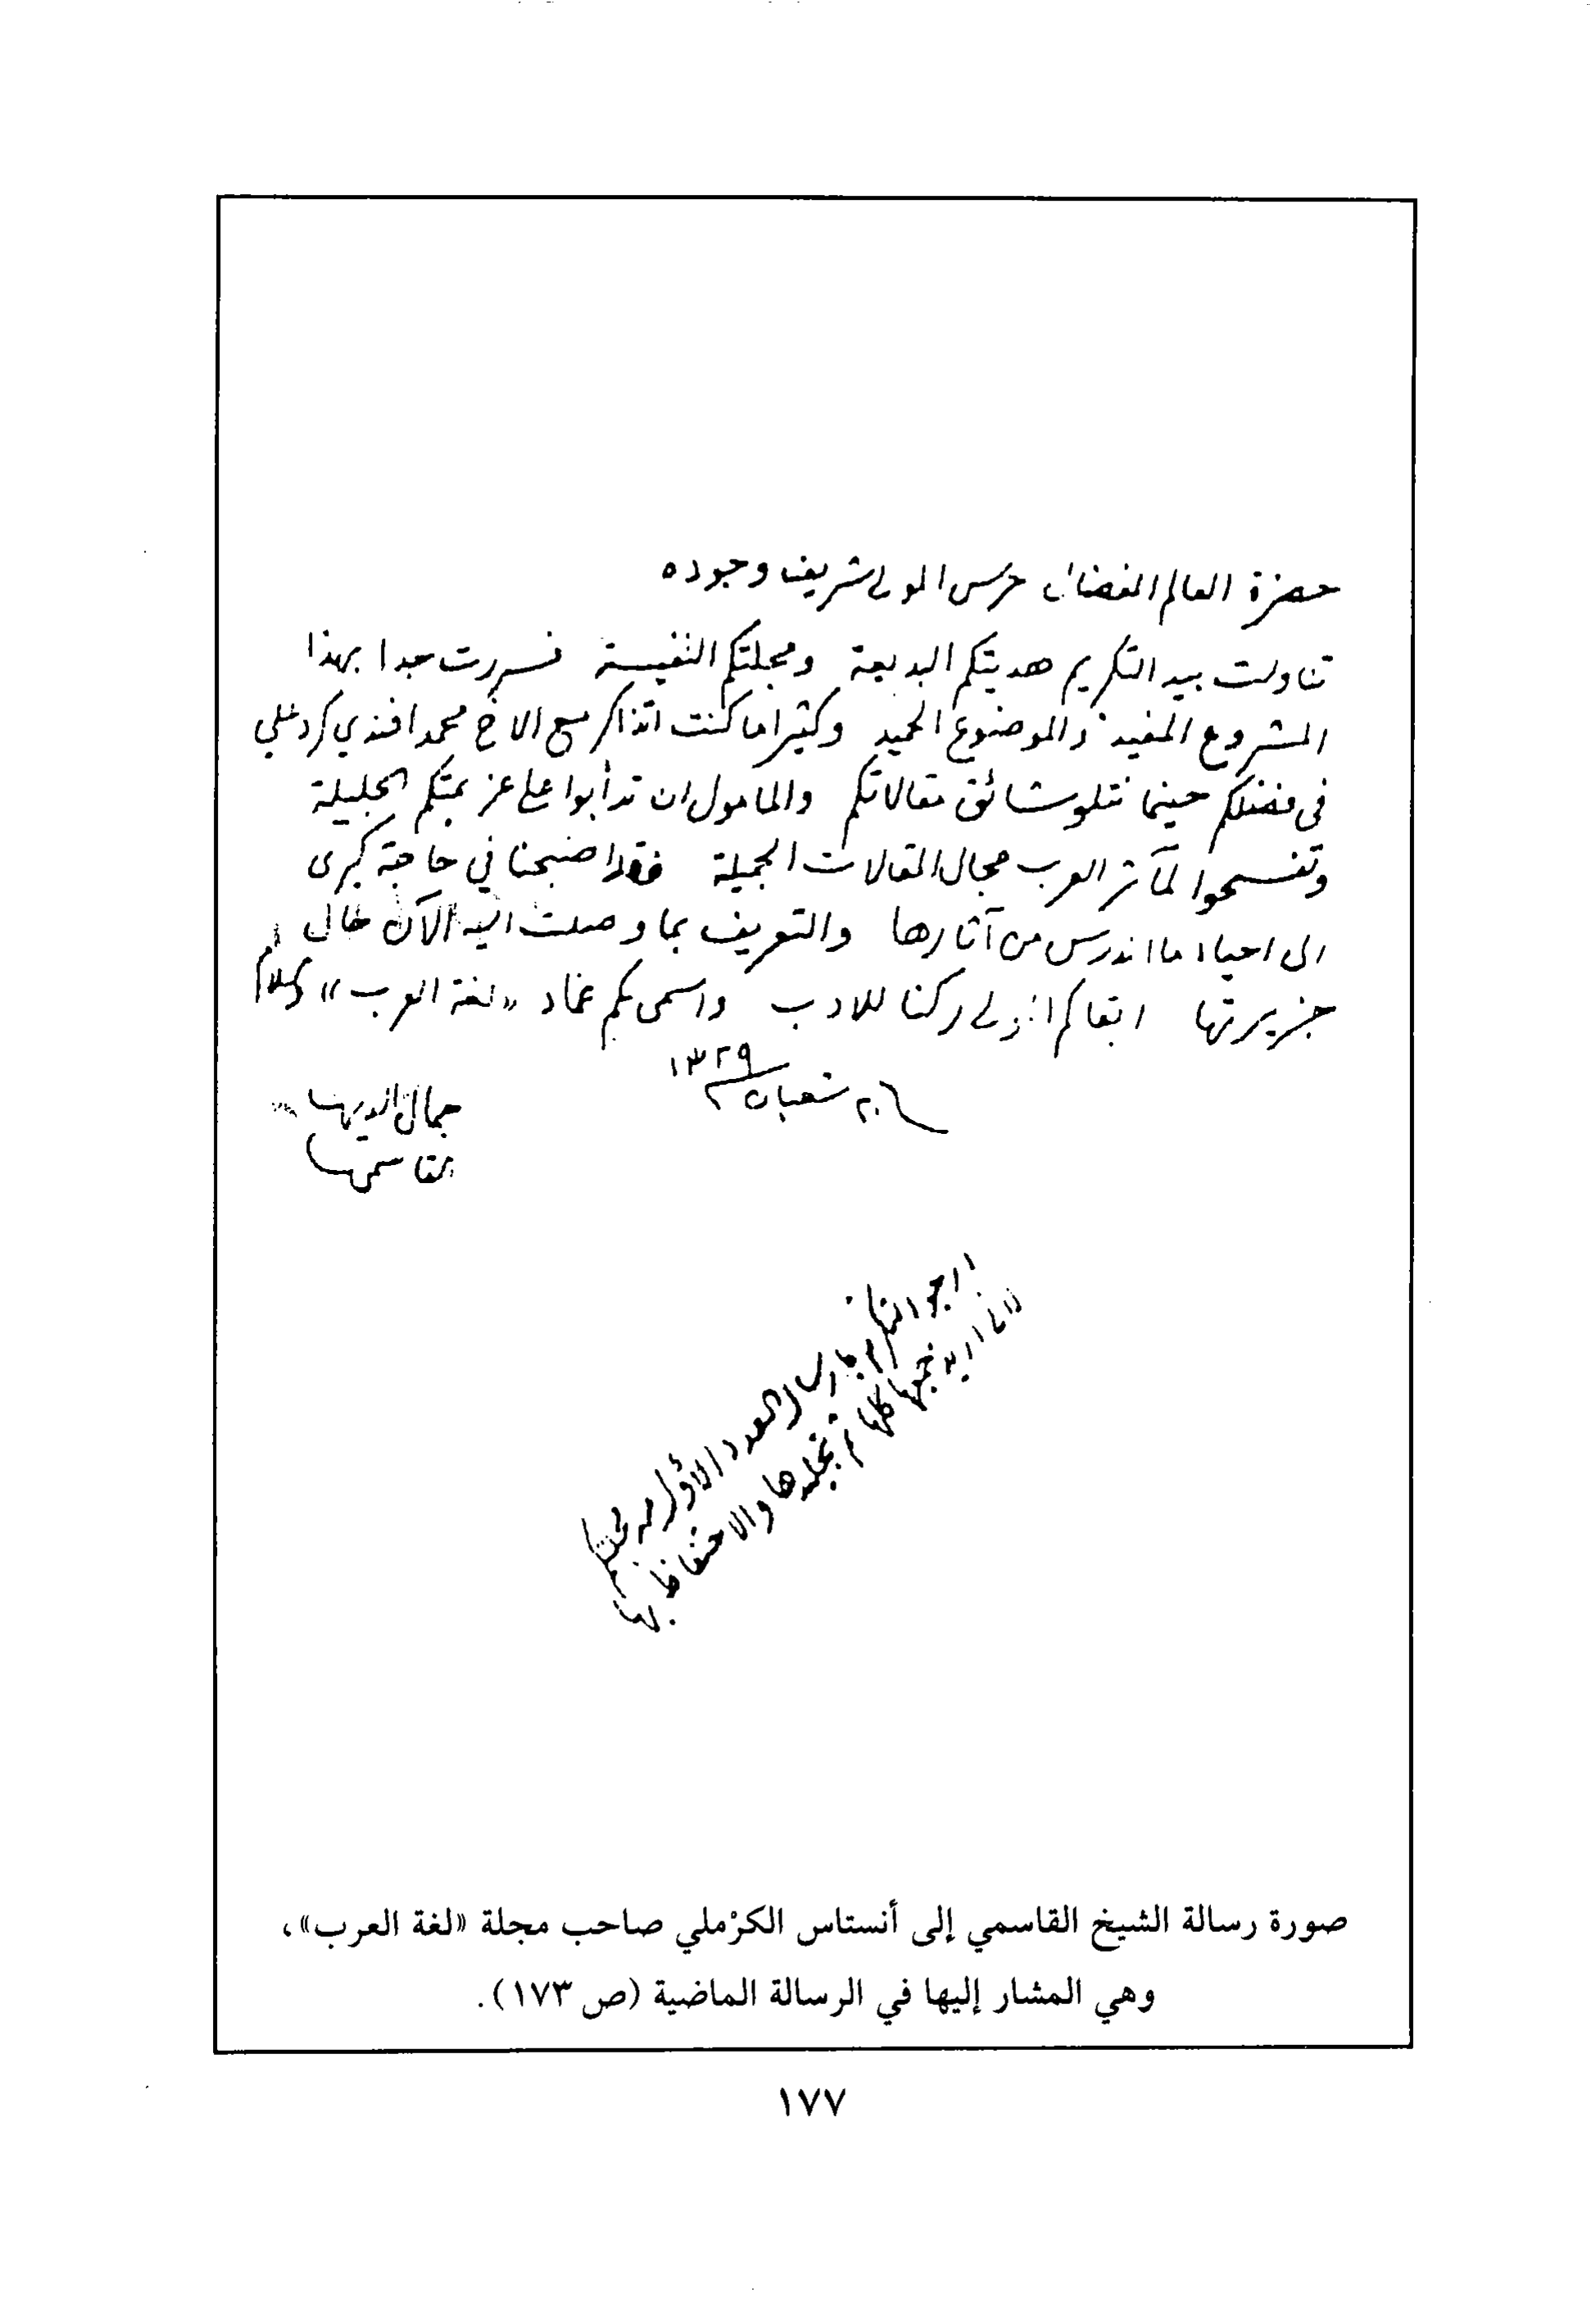 حضرة العالم المفضال حرس المولى شريف وجوده
تناولت بيد التكريم هديتكم البديعة ومجلتكم النفيسة فسررت جدا بهذا
المشروع المفيد والموضوع الحميد وكثيرا ما كنت اتذاكر مع الاخ محمد افندي كرد علي
في فضلكم حينما نتلو شائق مقالاتكم والمامول ان تدأبوا على عزيمتكم الجليلة
وتفسحوا لمآثر العرب مجال المقالات الجميلة فقد اضبحنا في حاجة كبرى
الى احياء ما اندرس من آثارها والتعريف بما وصلت اليه الآن حال
جزيرتها ابقاكم المولى ركنا للادب واسمى بكم عماد «لغة العرب» والسلام
٢٠ شعبان ١٣٢٩
جمال الدين
القاسمي
ارجو التكرم بارسال العدد الاول من مجلتكم
لانا نريد جمعها كلها ثم تجليدها والاحتفاظ بها
صورة رسالة الشيخ القاسمي إلى أنستاس الكرْملي صاحب مجلة «لغة العرب»،
وهي المشار إليها في الرسالة الماضية (ص ١٧٣).
١٧٧